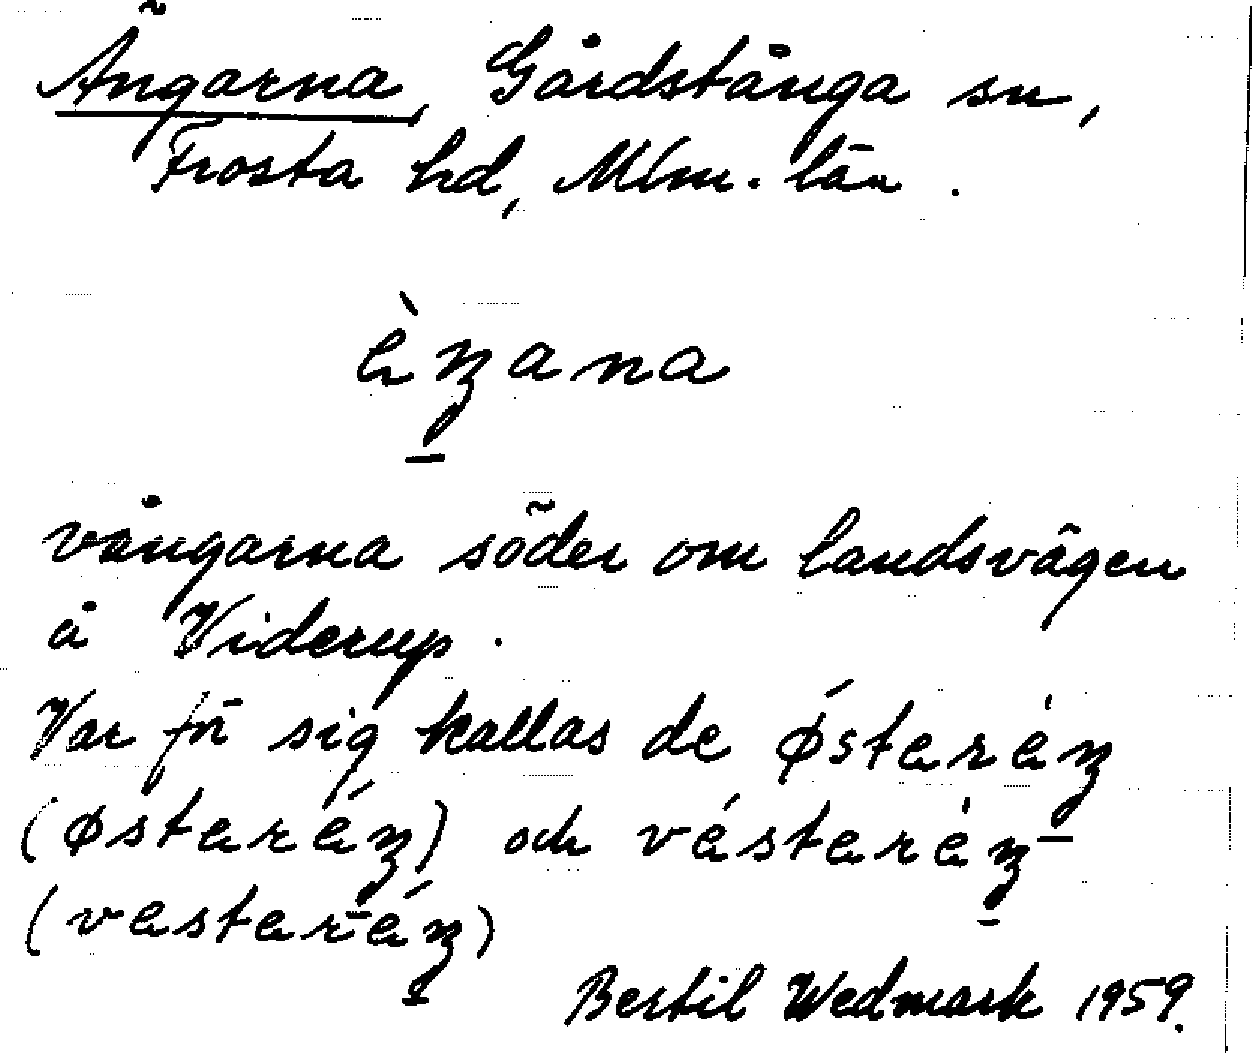 Ängarna, Gårdstånga sn,
Frosta hd, Mlm. län.
èŋana
vångarna söder om landsvägen
å Viderup.
Var för sig kallas de østeréŋ
(østeréŋ) och vésteréŋ
(vesteréŋ)
Bertil Wedmark 1959.